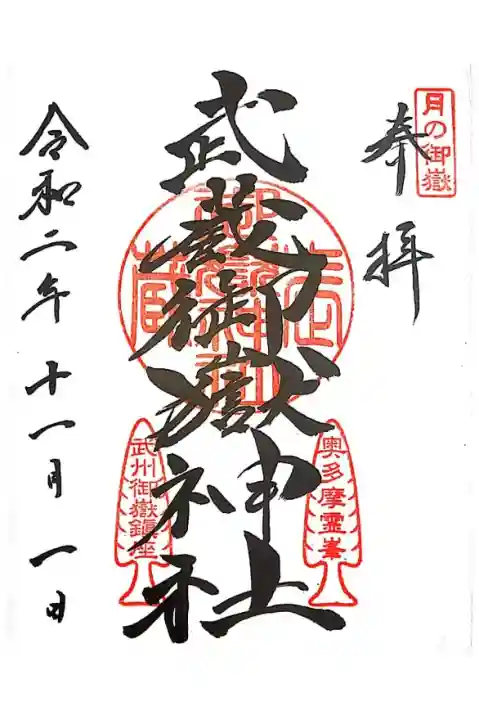 月の御嶽
奉拝
奥多摩霊峯
武蔵御嶽神社
武州御嶽鎮座
令和二年十一月一日